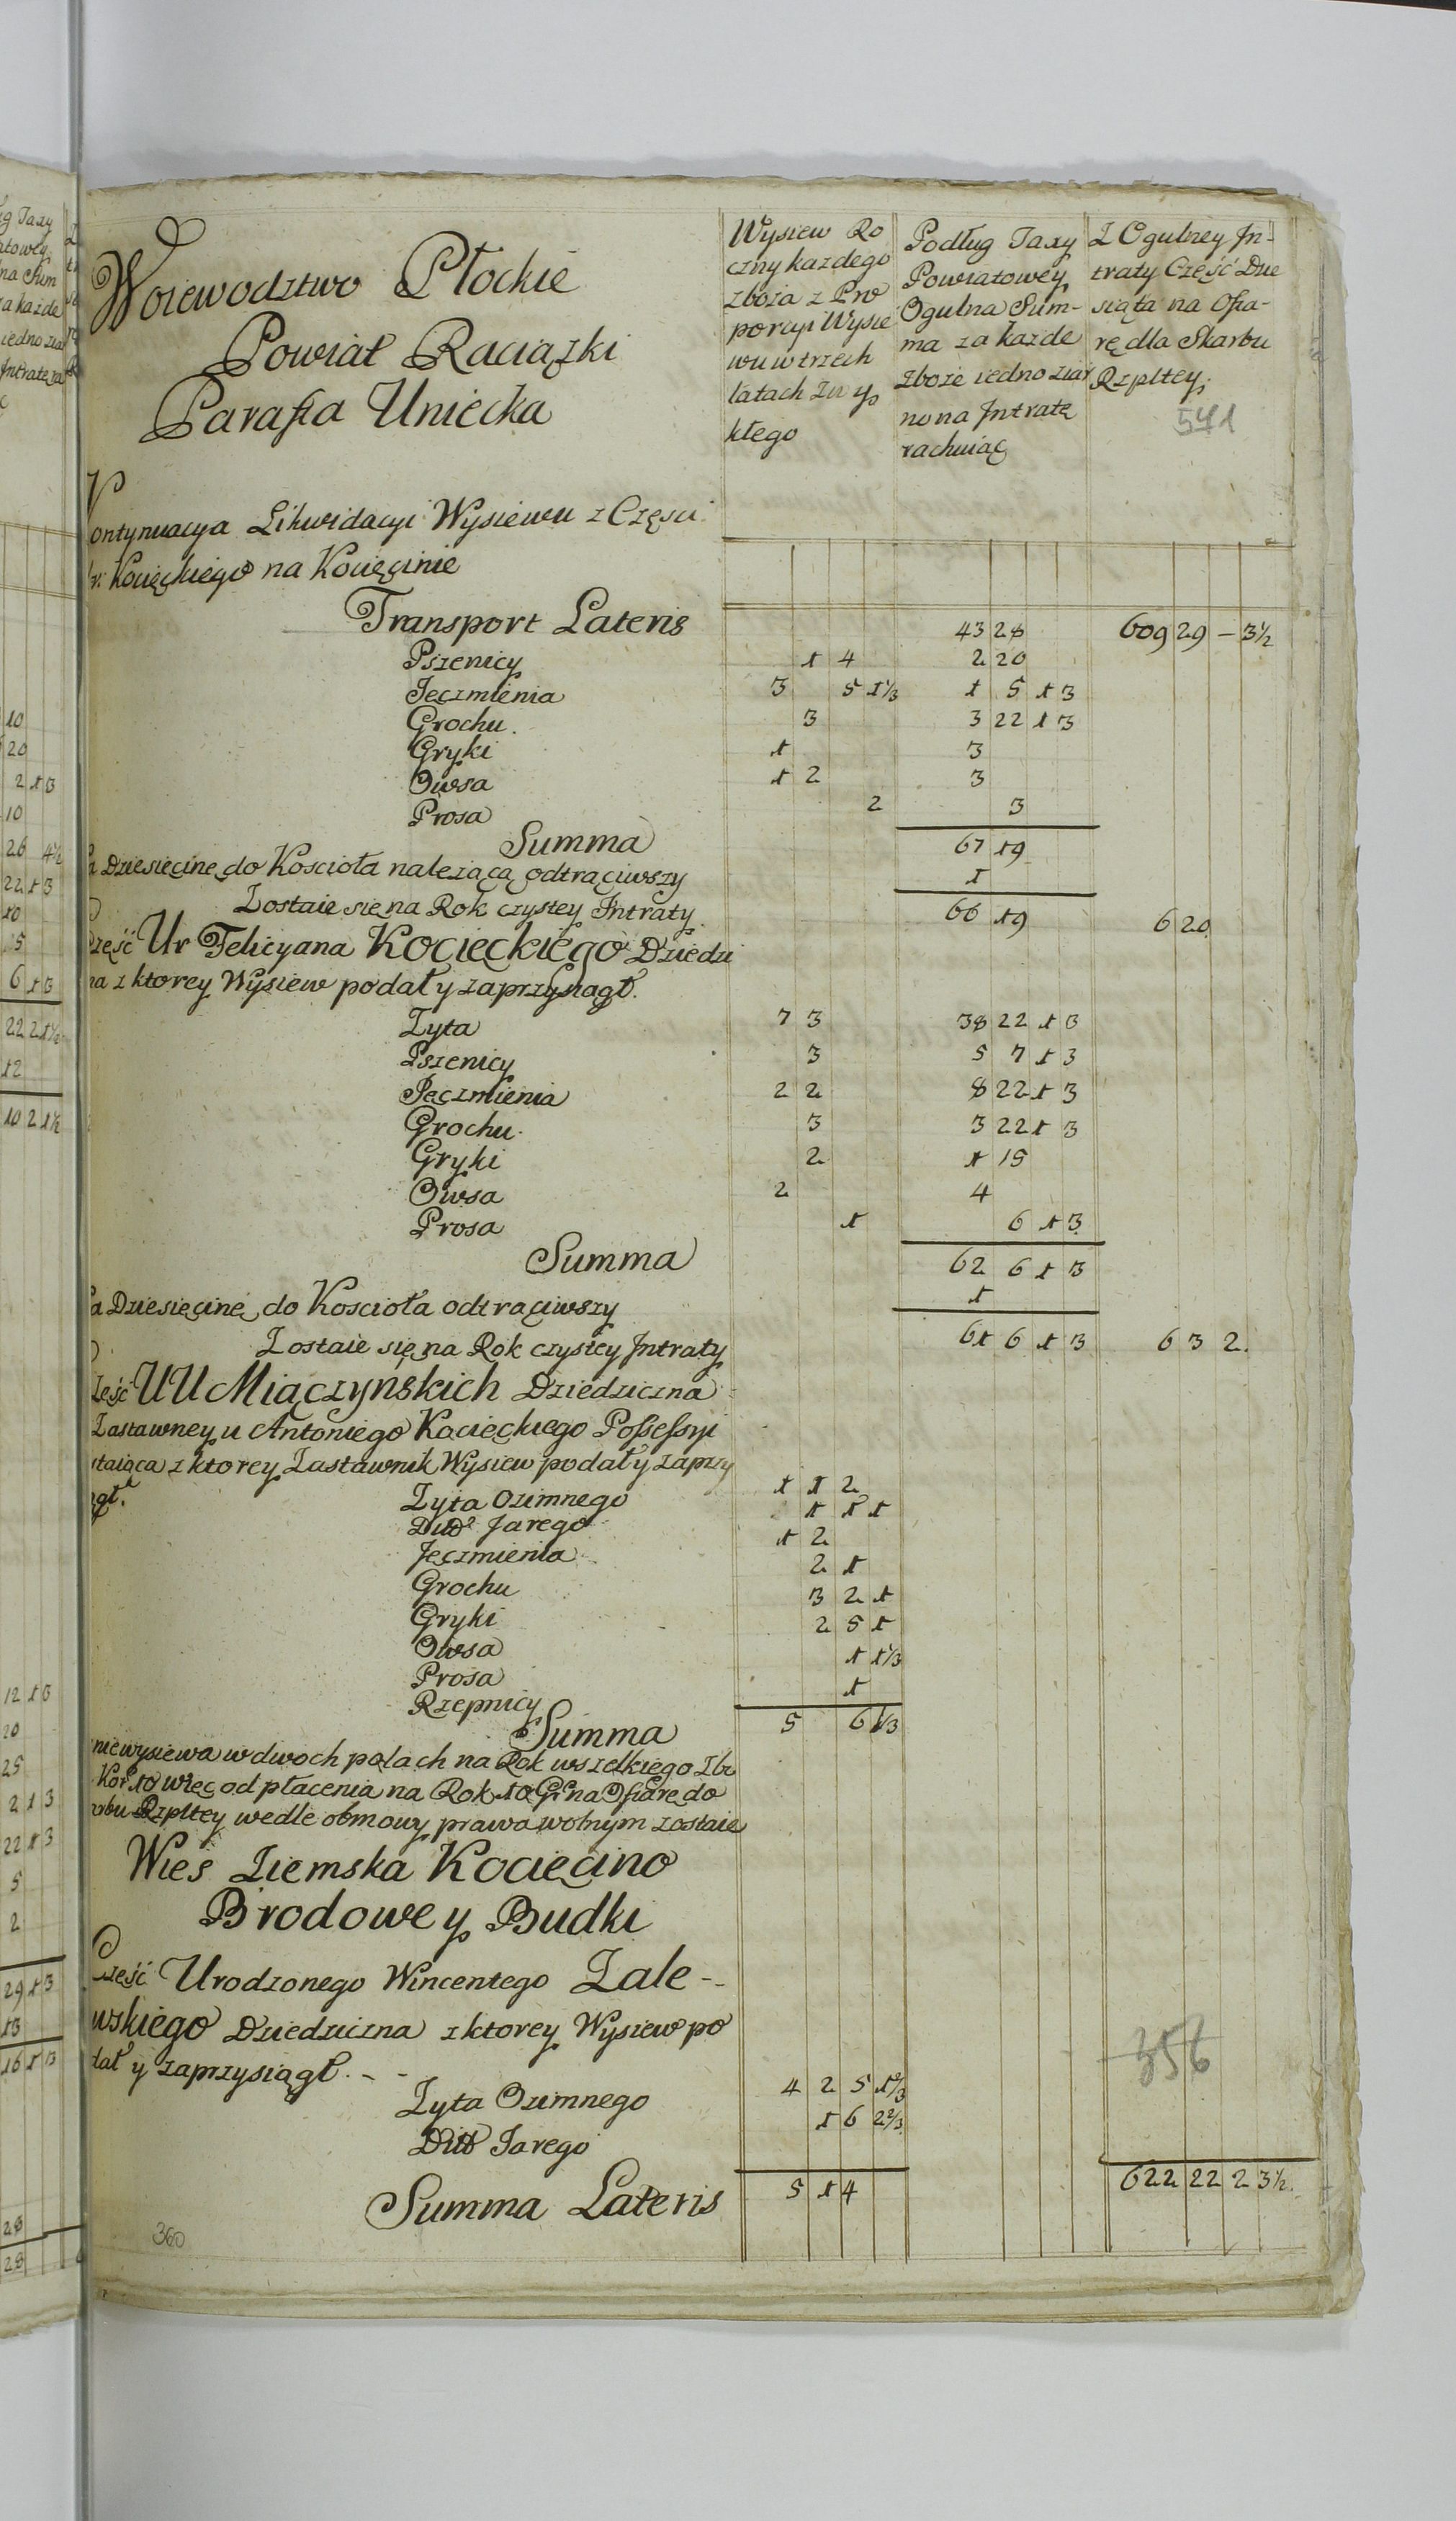 Woiewodztwo Płockie
Powiat Raciązki
Parafia Uniecka
Wysiew Ro
czny kazdego
zboza z Pro
porcyi Wysie
wu w trzech
latach Zwy
kłego
Podług Taxy
Powiatowey
Ogulna Sum-
ma za kazde
zboze iedno ziar
no na Intratę
rachuiąc
Z Ogulney In-
traty Część Dzie
siąta na Ofia-
rę dla Skarbu
Rzpltey
571
ontynuacya Likwidacyi Wysiewu z Częsci
Kocięckiego na Kocięcinie
Transport Lateris 43 28 609 29 – 3½
Pszenicy 1 4 2 20
Jęczmienia 3 5 1⅓ 1 5 1 3
Grochu 3 3 22 1 3
Gryki 1 3
Owsa 1 2 3
Prosa 2 3
Summa 67 19
a Dziesięcinę do Koscioła nalezącą odtrąciwszy 1
Zostaie się na Rok czystey Intraty 66 19 6 20
zęść Ur Felicyana Kocięckiego Dziedzi
na z ktorey Wysiew podał y zaprzysiągł.
Zyta 7 3 38 22 1 3
Pszenicy 3 5 7 1 3
Jęczmienia 2 2 8 22 1 3
Grochu 3 3 22 1 3
Gryki 2 1 15
Owsa 2 4
Prosa 1 6 1 3
Summa 62 6 1 3
a Dziesięcinę do Koscioła odtrąciwszy 1
Zostaie się na Rok czystey Intraty 61 6 1 3 6 3 2
zęść UU Miączyńskich Dziedziczna
Zastawney u Antoniego Kocięckiego Possessyi
staiąca z ktorey Zastawnik Wysiew podał y zaprzy
ągł.
Zyta Ozimnego 1 1 2
Ditto Jarego 1 1 1
Jęczmienia 1 2
Grochu 2 1
Gryki 3 2 1
Owsa 2 5 1
Prosa 1 1⅓
Rzepnicy 1
Summa 5 6 ⅓
nie wysiewa w dwoch polach na Rok wszelkiego Zbo
Kor 10 więc od płacenia na Rok 10 Gr. na Ofiarę do
arbu Rzpltey wedle obmowy prawa wolnym zostaie
Wieś Ziemska Kocięcino
Brodowe y Budki
Część Urodzonego Wincentego Zale-
wskiego Dziedziczna z ktorey Wysiew po
dał y zaprzysiągł.
Zyta Ozimnego 4 2 5 1⅔
Ditto Jarego 1 6 2⅔
356
Summa Lateris 5 1 4 622 22 2 3½
360